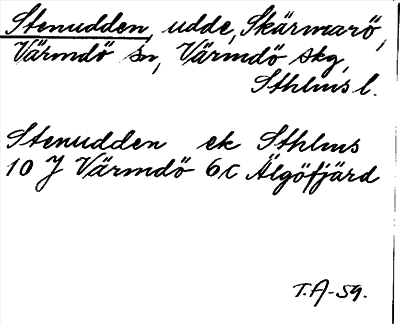 Stenudden, udde, Skärmarö,
Värmdö sn, Värmdö skg,
Sthlms l.
Stenudden ek Sthlms
10 J Värmdö 6c Älgöfjärd
T.A-59.